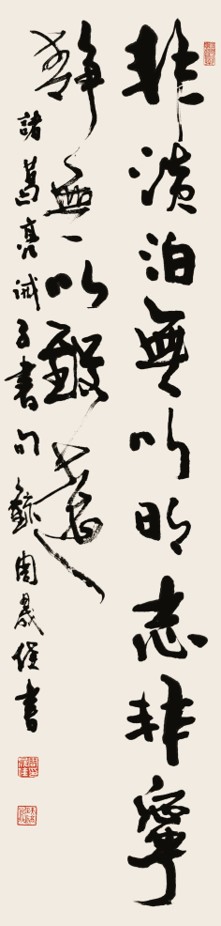 非淡泊無以明志非寧
靜無以致遠
諸葛亮誡子書句錄周晟俊書